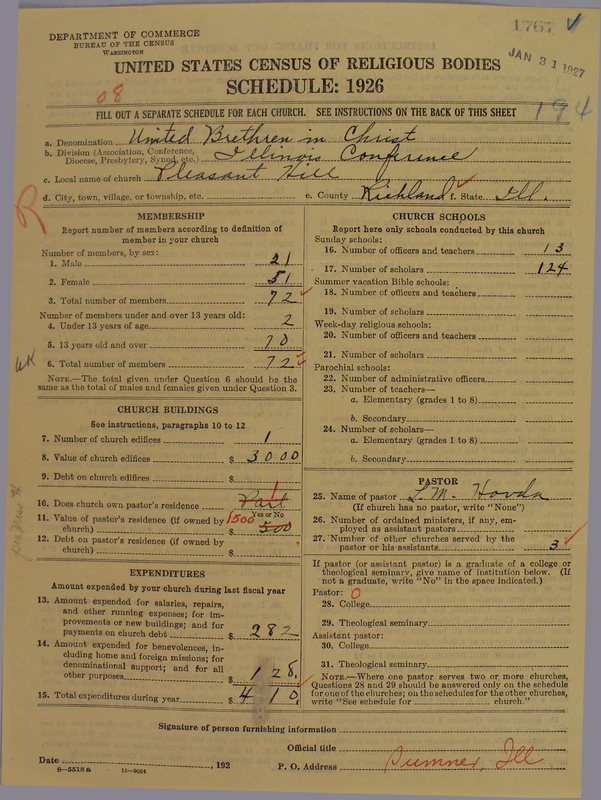 1767 ✓
DEPARTMENT OF COMMERCE
BUREAU OF THE CENSUS
WASHINGTON
JAN 31 1927
UNITED STATES CENSUS OF RELIGIOUS BODIES
SCHEDULE: 1926
08
194
FILL OUT A SEPARATE SCHEDULE FOR EACH CHURCH. SEE INSTRUCTIONS ON THE BACK OF THIS SHEET
a. Denomination United Brethren in Christ
b. Division (Association, Conference, Diocese, Presbytery, Synod, etc.) Illinois Conference
c. Local name of church Pleasant Hill
d. City, town, village, or township, etc. e. County Richland ✓ f. State Ill.
R
MEMBERSHIP
Report number of members according to definition of
member in your church
Number of members, by sex:
1. Male 21
2. Female 51
3. Total number of members 72 ✓
Number of members under and over 13 years old:
4. Under 13 years of age 2
5. 13 years old and over 70
6. Total number of members 72 ✓
NOTE.—The total given under Question 6 should be the
same as the total of males and females given under Question 3.
CHURCH BUILDINGS
See instructions, paragraphs 10 to 12
7. Number of church edifices 1
8. Value of church edifices $ 3000
9. Debt on church edifices $
10. Does church own pastor's residence Part 1
Yes or No
11. Value of pastor's residence (if owned by
church) $ 1500 500
12. Debt on pastor's residence (if owned by
church) $
EXPENDITURES
Amount expended by your church during last fiscal year
13. Amount expended for salaries, repairs,
and other running expenses; for im-
provements or new buildings; and for
payments on church debt $ 282
14. Amount expended for benevolences, in-
cluding home and foreign missions; for
denominational support; and for all
other purposes $ 128
15. Total expenditures during year $ 410 ✓
CHURCH SCHOOLS
Report here only schools conducted by this church
Sunday schools:
16. Number of officers and teachers 13
17. Number of scholars 124
Summer vacation Bible schools:
18. Number of officers and teachers
19. Number of scholars
Week-day religious schools:
20. Number of officers and teachers
21. Number of scholars
Parochial schools:
22. Number of administrative officers
23. Number of teachers—
a. Elementary (grades 1 to 8)
b. Secondary
24. Number of scholars—
a. Elementary (grades 1 to 8)
b. Secondary
PASTOR
25. Name of pastor L. M. Hovda
(If church has no pastor, write "None")
26. Number of ordained ministers, if any, em-
ployed as assistant pastors
27. Number of other churches served by the
pastor or his assistants 3 ✓
If pastor (or assistant pastor) is a graduate of a college or
theological seminary, give name of institution below. (If
not a graduate, write "No" in the space indicated.)
Pastor: 0
28. College
29. Theological seminary
Assistant pastor:
30. College
31. Theological seminary
NOTE.—Where one pastor serves two or more churches,
Questions 28 and 29 should be answered only on the schedule
for one of the churches; on the schedules for the other churches,
write "See schedule for church."
Signature of person furnishing information
Official title
Date , 192 P. O. Address Sumner, Ill
8—5518a 11—9054